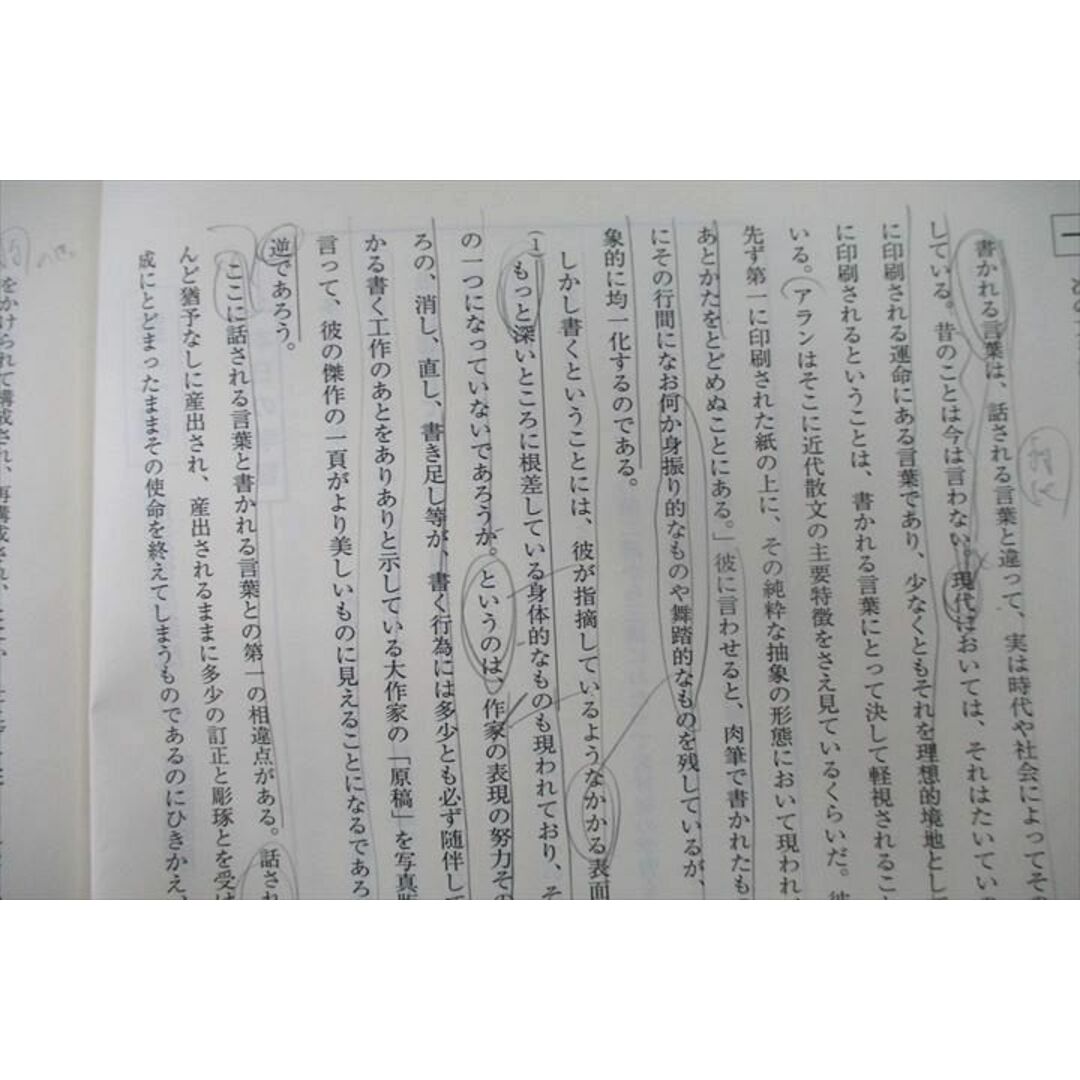 一
書かれる言葉は、話される言葉と違って、実は時代や社会によってその
している。昔のことは今は言わない。現代においては、それはたいていの
に印刷される運命にある言葉であり、少なくともそれを理想的境地とし
に印刷されるということは、書かれる言葉にとって決して軽視されるこ
いる。アランはそこに近代散文の主要特徴をさえ見ているくらいだ。彼
先ず第一に印刷された紙の上に、その純粋な抽象の形態において現われ
あとかたをとどめぬことにある。」彼に言わせると、肉筆で書かれたも
にその行間になお何か身振り的なものや舞踏的なものを残しているが、
象的に均一化するのである。
しかし書くということには、彼が指摘しているようなかかる表面
(1)もっと深いところに根差している身体的なものも現われており、そ
の一つになっていないであろうか。というのは、作家の表現の努力その
ろの、消し、直し、書き足し等が、書く行為には多少とも必ず随伴して
かる書く工作のあとをありありと示している大作家の「原稿」を写真版
言って、彼の傑作の一頁がより美しいものに見えることになるであろ
逆であろう。
ここに話される言葉と書かれる言葉との第一の相違点がある。話され
んど猶予なしに産出され、産出されるままに多少の訂正と彫琢とを受け
成にとどまったままその使命を終えてしまうものであるのにひきかえ、
をかけられて構成され、再構成され、